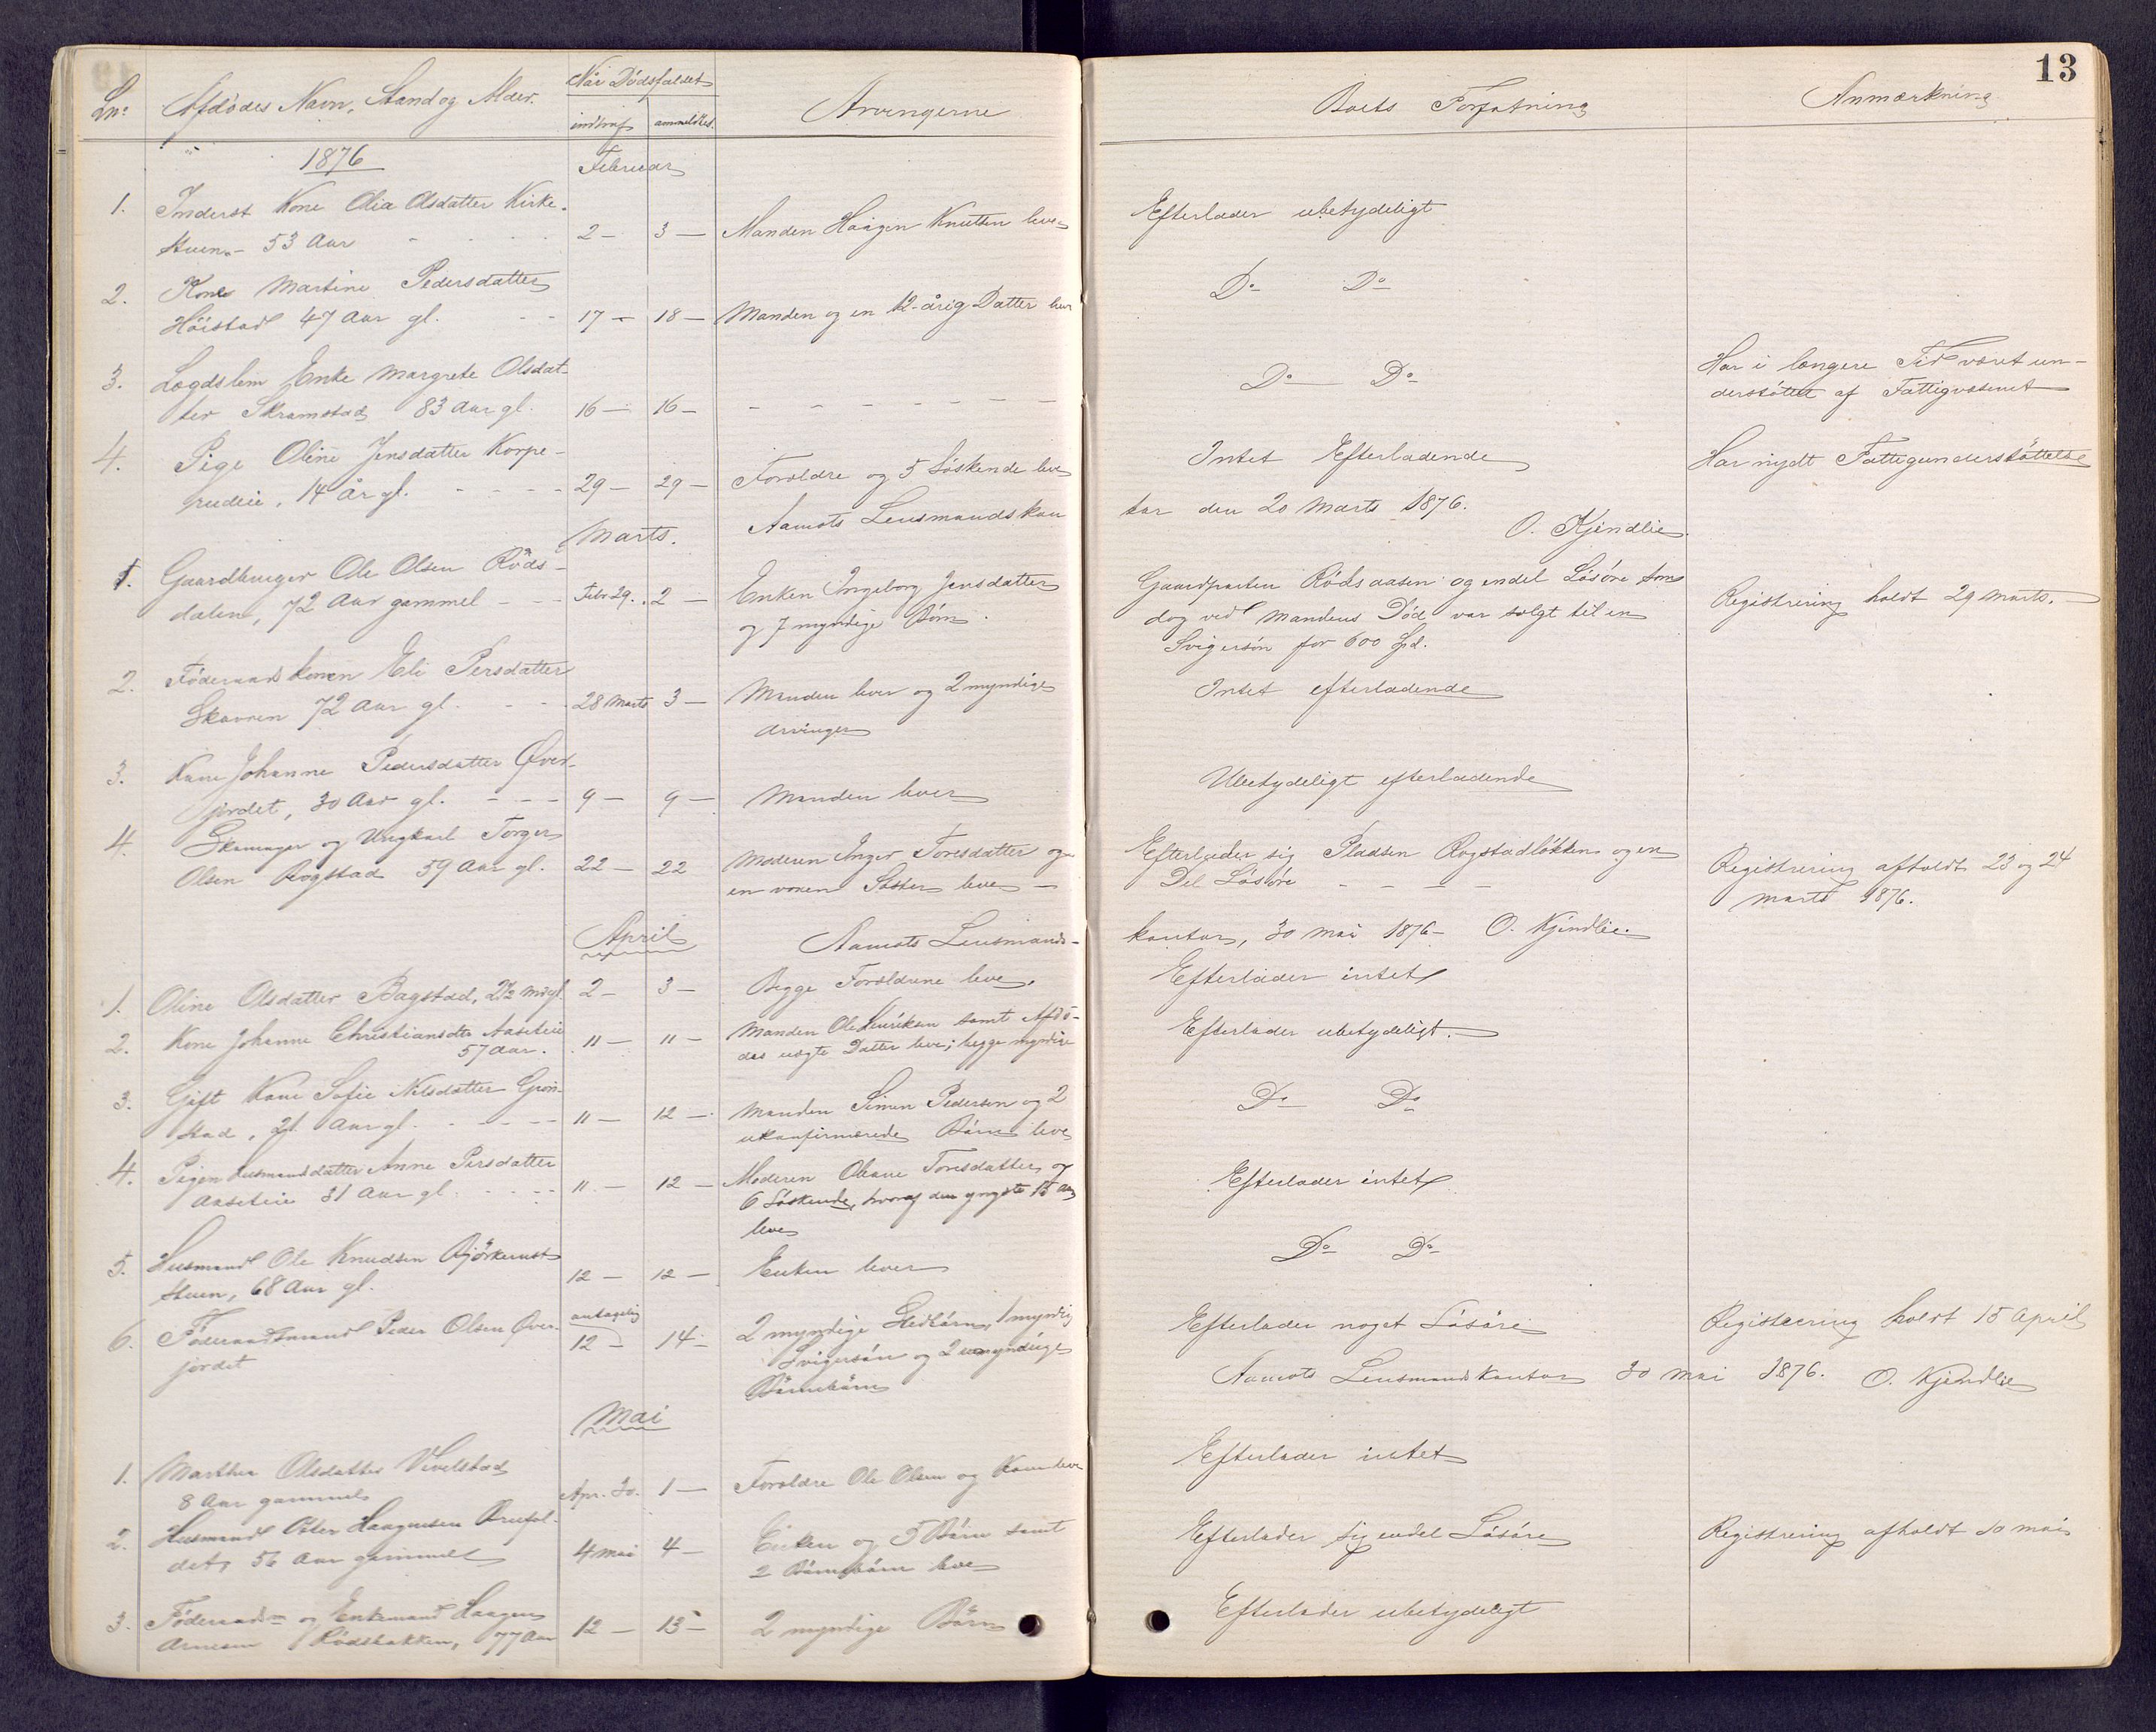 13
Ln: Afdödes Navn, Stand og Alder. Når Dödsfaldet Arvingerne Boets Forfatning Anmærkning
indtraf anmeldtes.
1876 Februar
1. Inderst Kone Olia Olsdatter Kirke-
stuen - 53 Aar 2 - 3 - Manden Haagen Knutsen lever Efterlader ubetydeligt
2. Kone Martine Pedersdatter
Höistad 47 Aar gl. 17 - 18 - Manden og en 12-årig Datter lever Do Do
3. Lægdslem Enke Margrete Olsdat-
ter Skramstad 83 Aar gl. 16 - 16 - - - - - - - Do Do Har i længere Tid været un-
derstöttet af Fattigvæsenet
4. Pige Oline Jensdatter Korpe-
rudeie, 14 år gl. 29 - 29 - Forældre og 5 Söskende lever Intet Efterladende Har nydt Fattigunderstöttelse
Marts. Aamots Lensmandskon
tor den 20 Marts 1876.
O. Kjendlie
1. Gaardbruger Ole Olsen Röds-
dalen, 72 Aar gammel - - Febr 29. 2 - Enken Ingeborg Jensdatter
og 7 myndige Börn. Gaardparten Rödsaasen og endel Lösöre som
dog ved Mandens Död var solgt til en
Svigersön for 600 Spd. Registrering holdt 29 Marts.
2. Föderaadskonen Eli Persdatter
Skavren 72 Aar gl. 28 Marts 3 - Manden lever og 2 myndige
Arvinger Intet efterladende
3. Kone Johanne Pedersdatter Över-
jordet, 30 Aar gl. - - - 9 - 9 - Manden lever Ubetydeligt efterladende
4. Skomager og Ungkarl Torger
Olsen Rogstad 59 Aar gl. 22 - 22 Moderen Inger Toresdatter og
en voxen Söster lever - Efterlader sig Pladsen Rogstadlökken og en
Del Lösöre - - - - Registrering afholdt 23 og 24
Marts 1876.
April Aamots Lensmands-
kontor, 30 Mai 1876 - O. Kjendlie.
1. Oline Olsdatter Bagstad, 2½ M. gl. 2 - 3 - Begge Forældrene lever. Efterlader intet
2. Kone Johanne Christiansdtr Aaseteie
57 Aar. 11 - 11 - Manden Ole Henriksen samt Afdö-
des uægte Datter lever; begge myndige Efterlader ubetydeligt. -
3. Gift Kone Sofie Nilsdatter Grön-
stad, 21 Aar gl. - - - - 11 - 12 - Manden Simen Pedersen og 2
ukonfirmerede Börn lever Do Do
4. Pigen Husmandsdatter Anne Persdatter
Aaseteie 31 Aar gl. - - - 11 - 12 - Moderen Oleane Toresdatter og
6 Söskende, hvoraf den yngste 15 Aar
lever Efterlader intet
5. Husmand Ole Knudsen Björkerust
stuen, 68 Aar gl. 12 - 12 - Enken lever Do Do
6. Föderaadsmand Peder Olsen Över-
jordet antagelig
12 - 14 - 2 myndige Stedbörn, 1 myndig
Svigersön og 2 umyndige
Börnebörn Efterlader noget Lösöre Registrering holdt 15 April
Aamots Lensmandskontor 30 Mai 1876. O. Kjendlie
Mai
1. Marthea Olsdatter Vivelstad
8 Aar gammel Apr. 30. 1 - Forældre Ole Olsen og Kone lever Efterlader intet
2. Husmand Haagensen
det, 56 Aar gammel 4 Mai 4 - Enken og 5 Börn samt
2 Börnebörn lever Efterlader sig endel Lösöre Registrering afholdt 10 Mai
3. Föderaadsm og Enkemand Haagen
Arnesen Rödsbakken, 77 Aar 12 - 13 - 2 myndige Börn Efterlader ubetydeligt